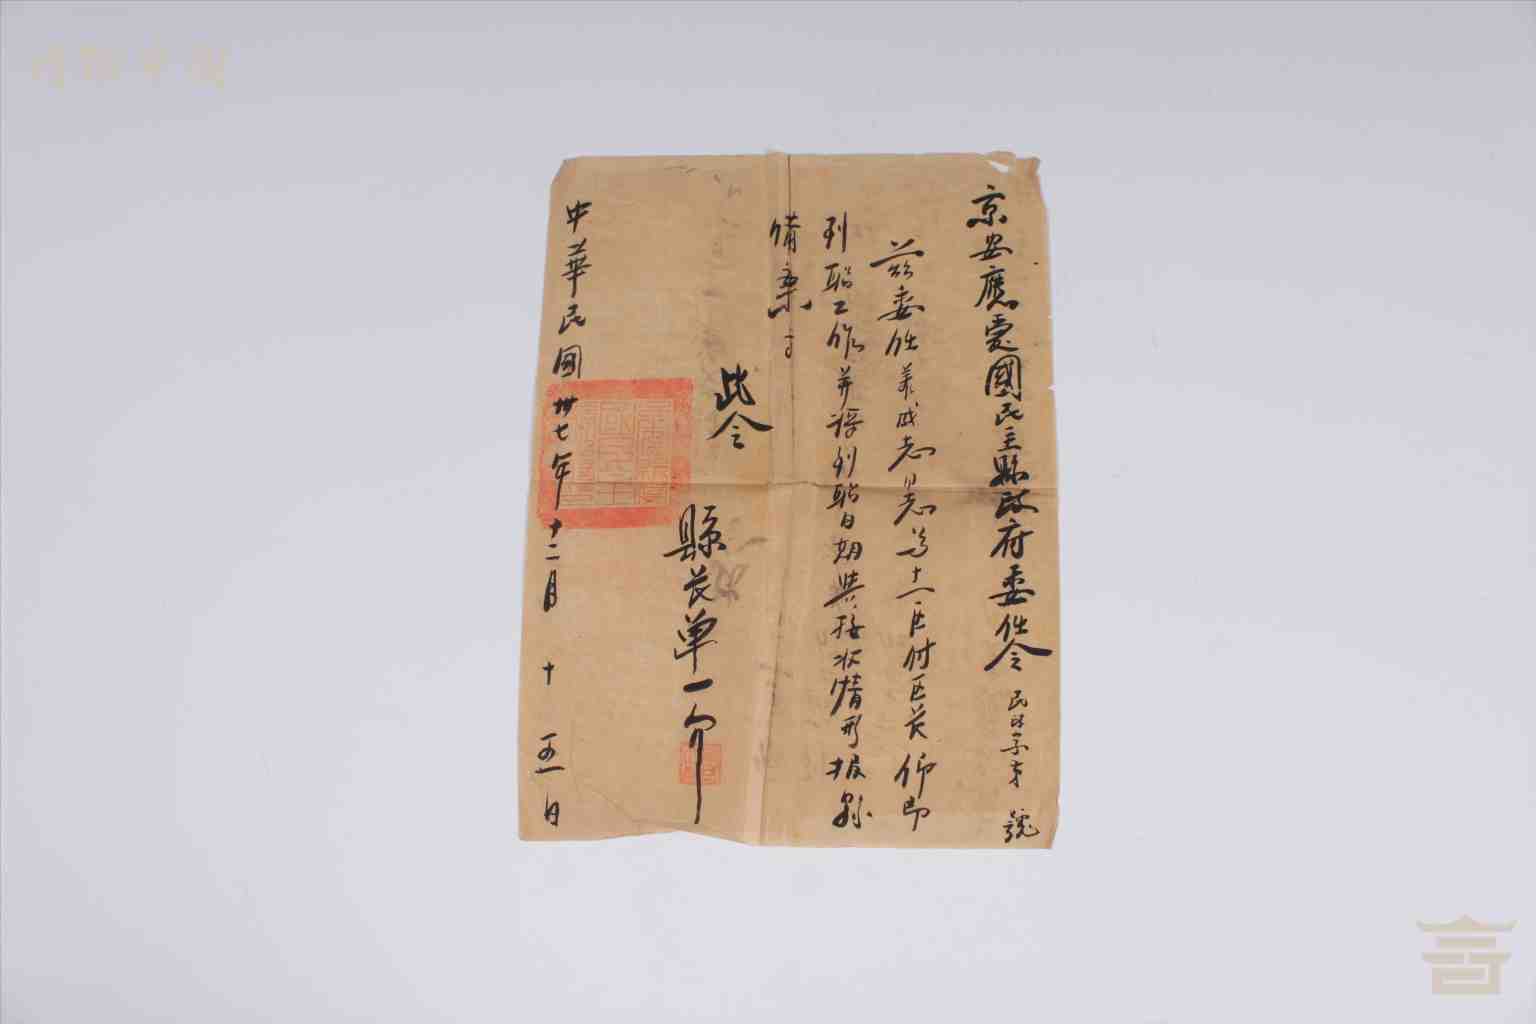 京安應愛國民主縣政府委任令 民政字第 號
茲委任義成志同志为十一區付区长仰即
到職工作并將到職日期與接收情形报縣
備案
此令
縣长单一介
中華民國卅七年十二月 十五日